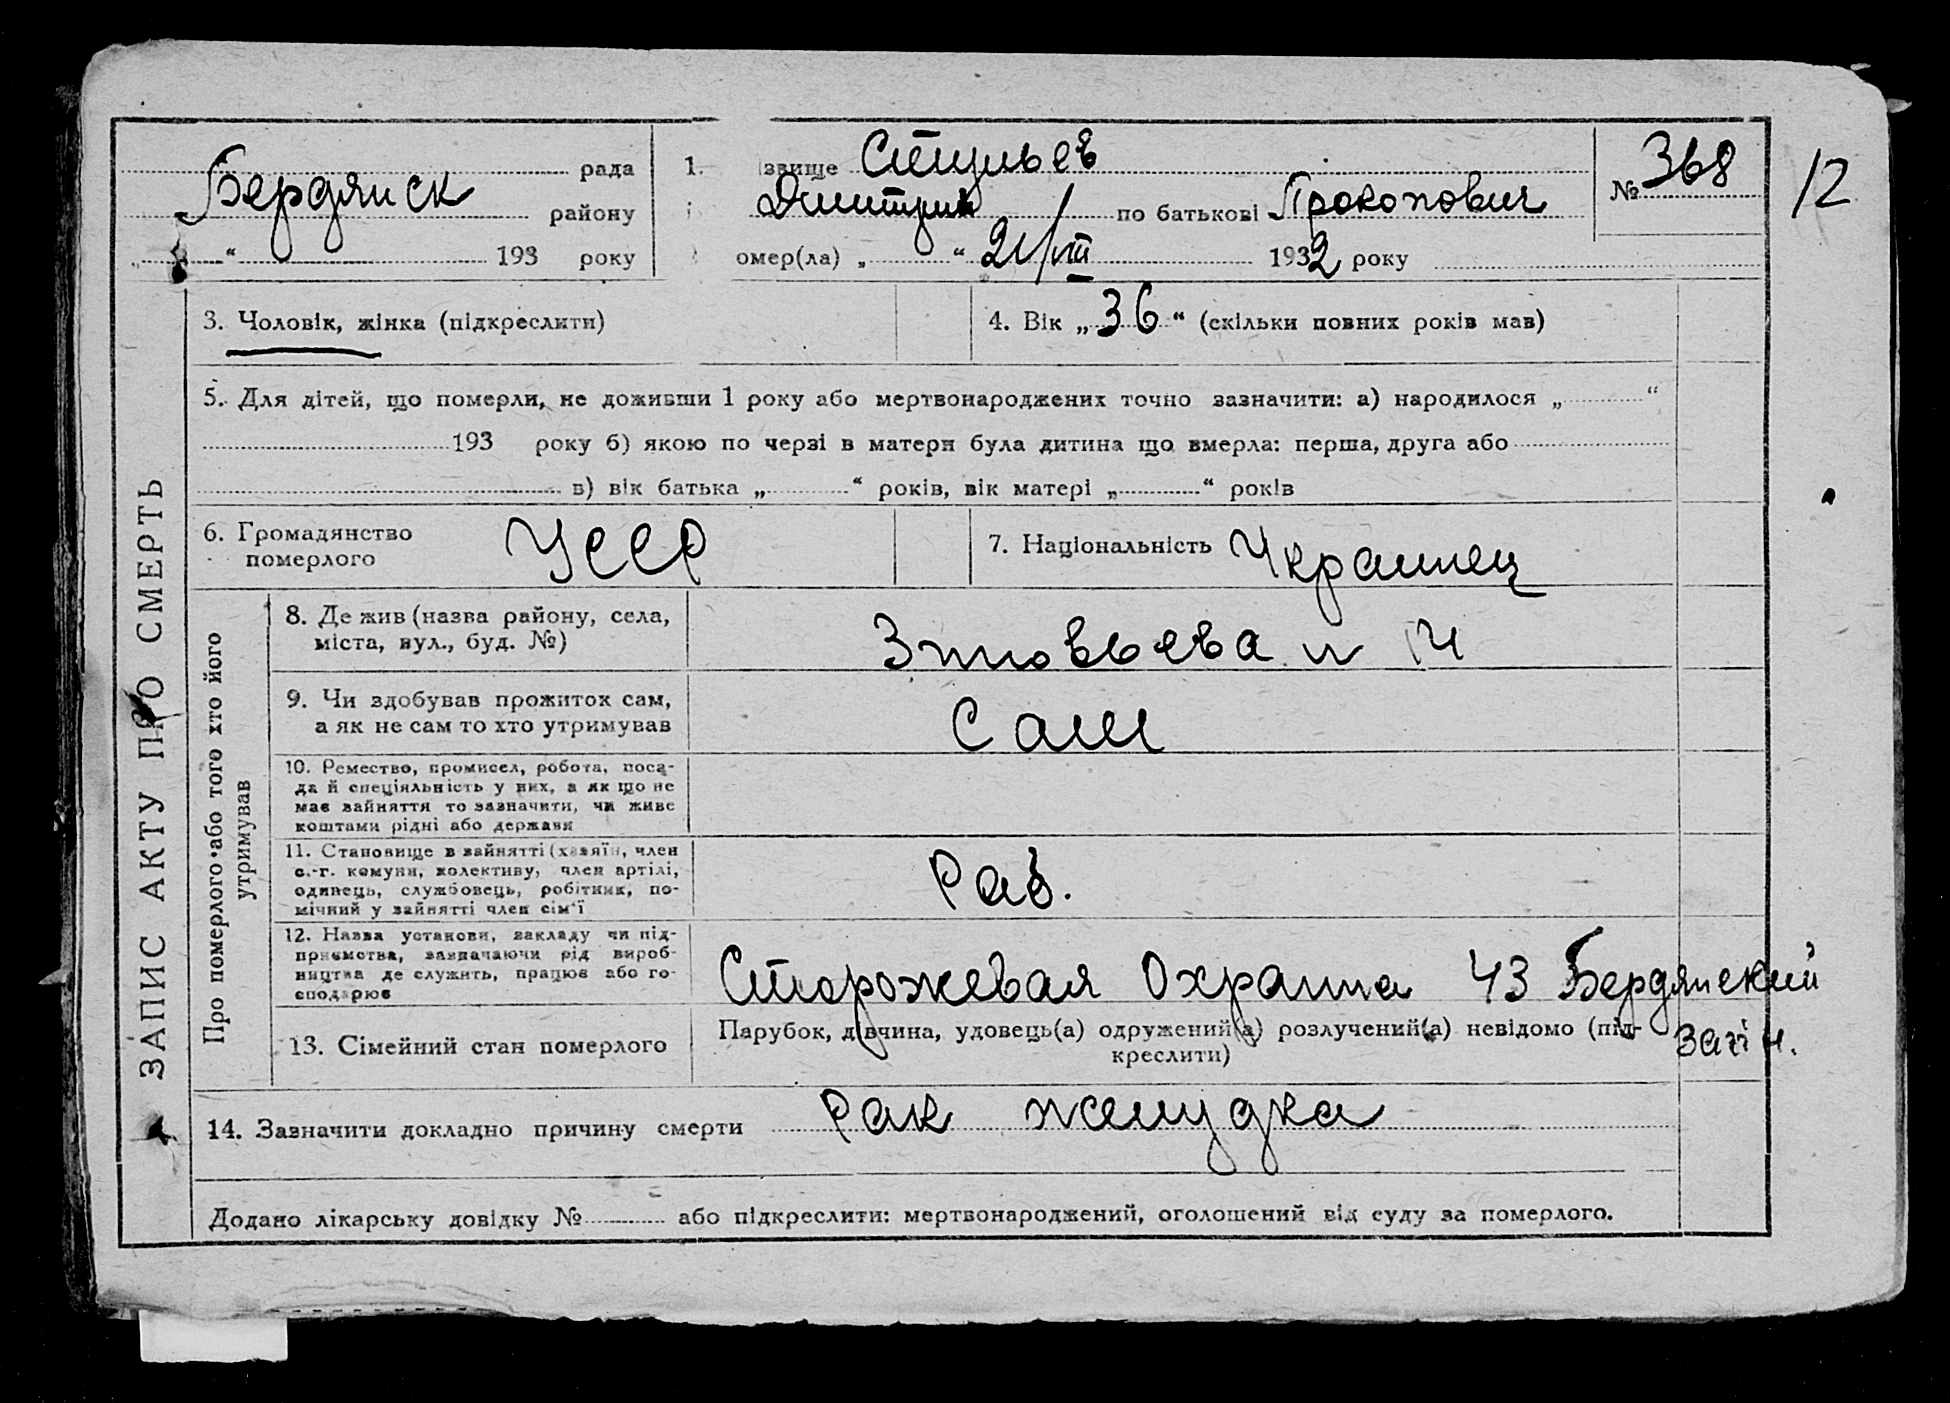 Бердянск рада
району
„ “ 193 року
1. звище
Дмитрий по батькові Прокопович
омер(ла) „ “ 21/III 1932 року
№ 368
12
ЗАПИС АКТУ ПРО СМЕРТЬ
3. Чоловік, жінка (підкреслити)
4. Вік „ 36 “ (скільки повних років мав)
5. Для дітей, що померли, не доживши 1 року або мертвонароджених точно зазначити: а) народилося „ “
193 року б) якою по черзі в матери була дитина що вмерла: перша, друга або
в) вік батька „ “ років, вік матері „ “ років
6. Громадянство
померлого
УССР
7. Національність Украинец
Про померлого або того хто його
утримував
8. Де жив (назва району, села,
міста, вул., буд. №)
Зиновьева
9. Чи здобував прожиток сам,
а як не сам то хто утримував
Сам
10. Ремество, промисел, робота, поса-
да й спеціяльність у них, а як що не
має зайняття то зазначити, чи живе
коштами рідні або держави
11. Становище в зайнятті (хазяїн, член
с.-г. комуни, колективу, член артілі,
одинець, службовець, робітник, по-
мічний у зайнятті член сім'ї
Раб.
12. Назва установи, закладу чи під-
приємства, зазначаючи рід вироб-
ництва де служить, працює або го-
сподарює
Сторожевая Охрана 43 Бердянский
13. Сімейний стан померлого
Парубок, дівчина, удовець(а) одружений(а) розлучений(а) невідомо (під-
креслити)
14. Зазначити докладно причину смерти Рак желудка
Додано лікарську довідку № або підкреслити: мертвонароджений, оголошений від суду за померлого.